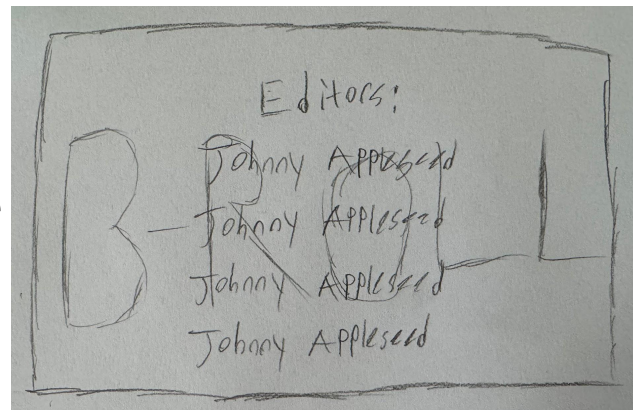 Editors:
B-ROLL
Johnny Appleseed
Johnny Appleseed
Johnny Appleseed
Johnny Appleseed